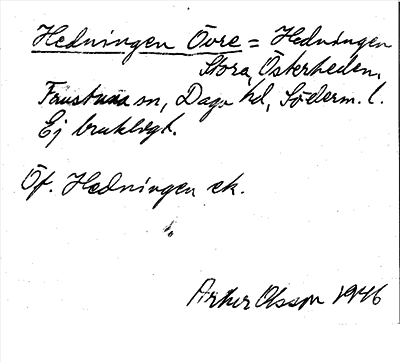 Hedningen Övre = Hedningen
Stora, Österheden,
Frustuna sn, Daga hd, Söderm. l.
Ej brukligt.
Öf. Hedningen ek.
Arthur Olsson 1946